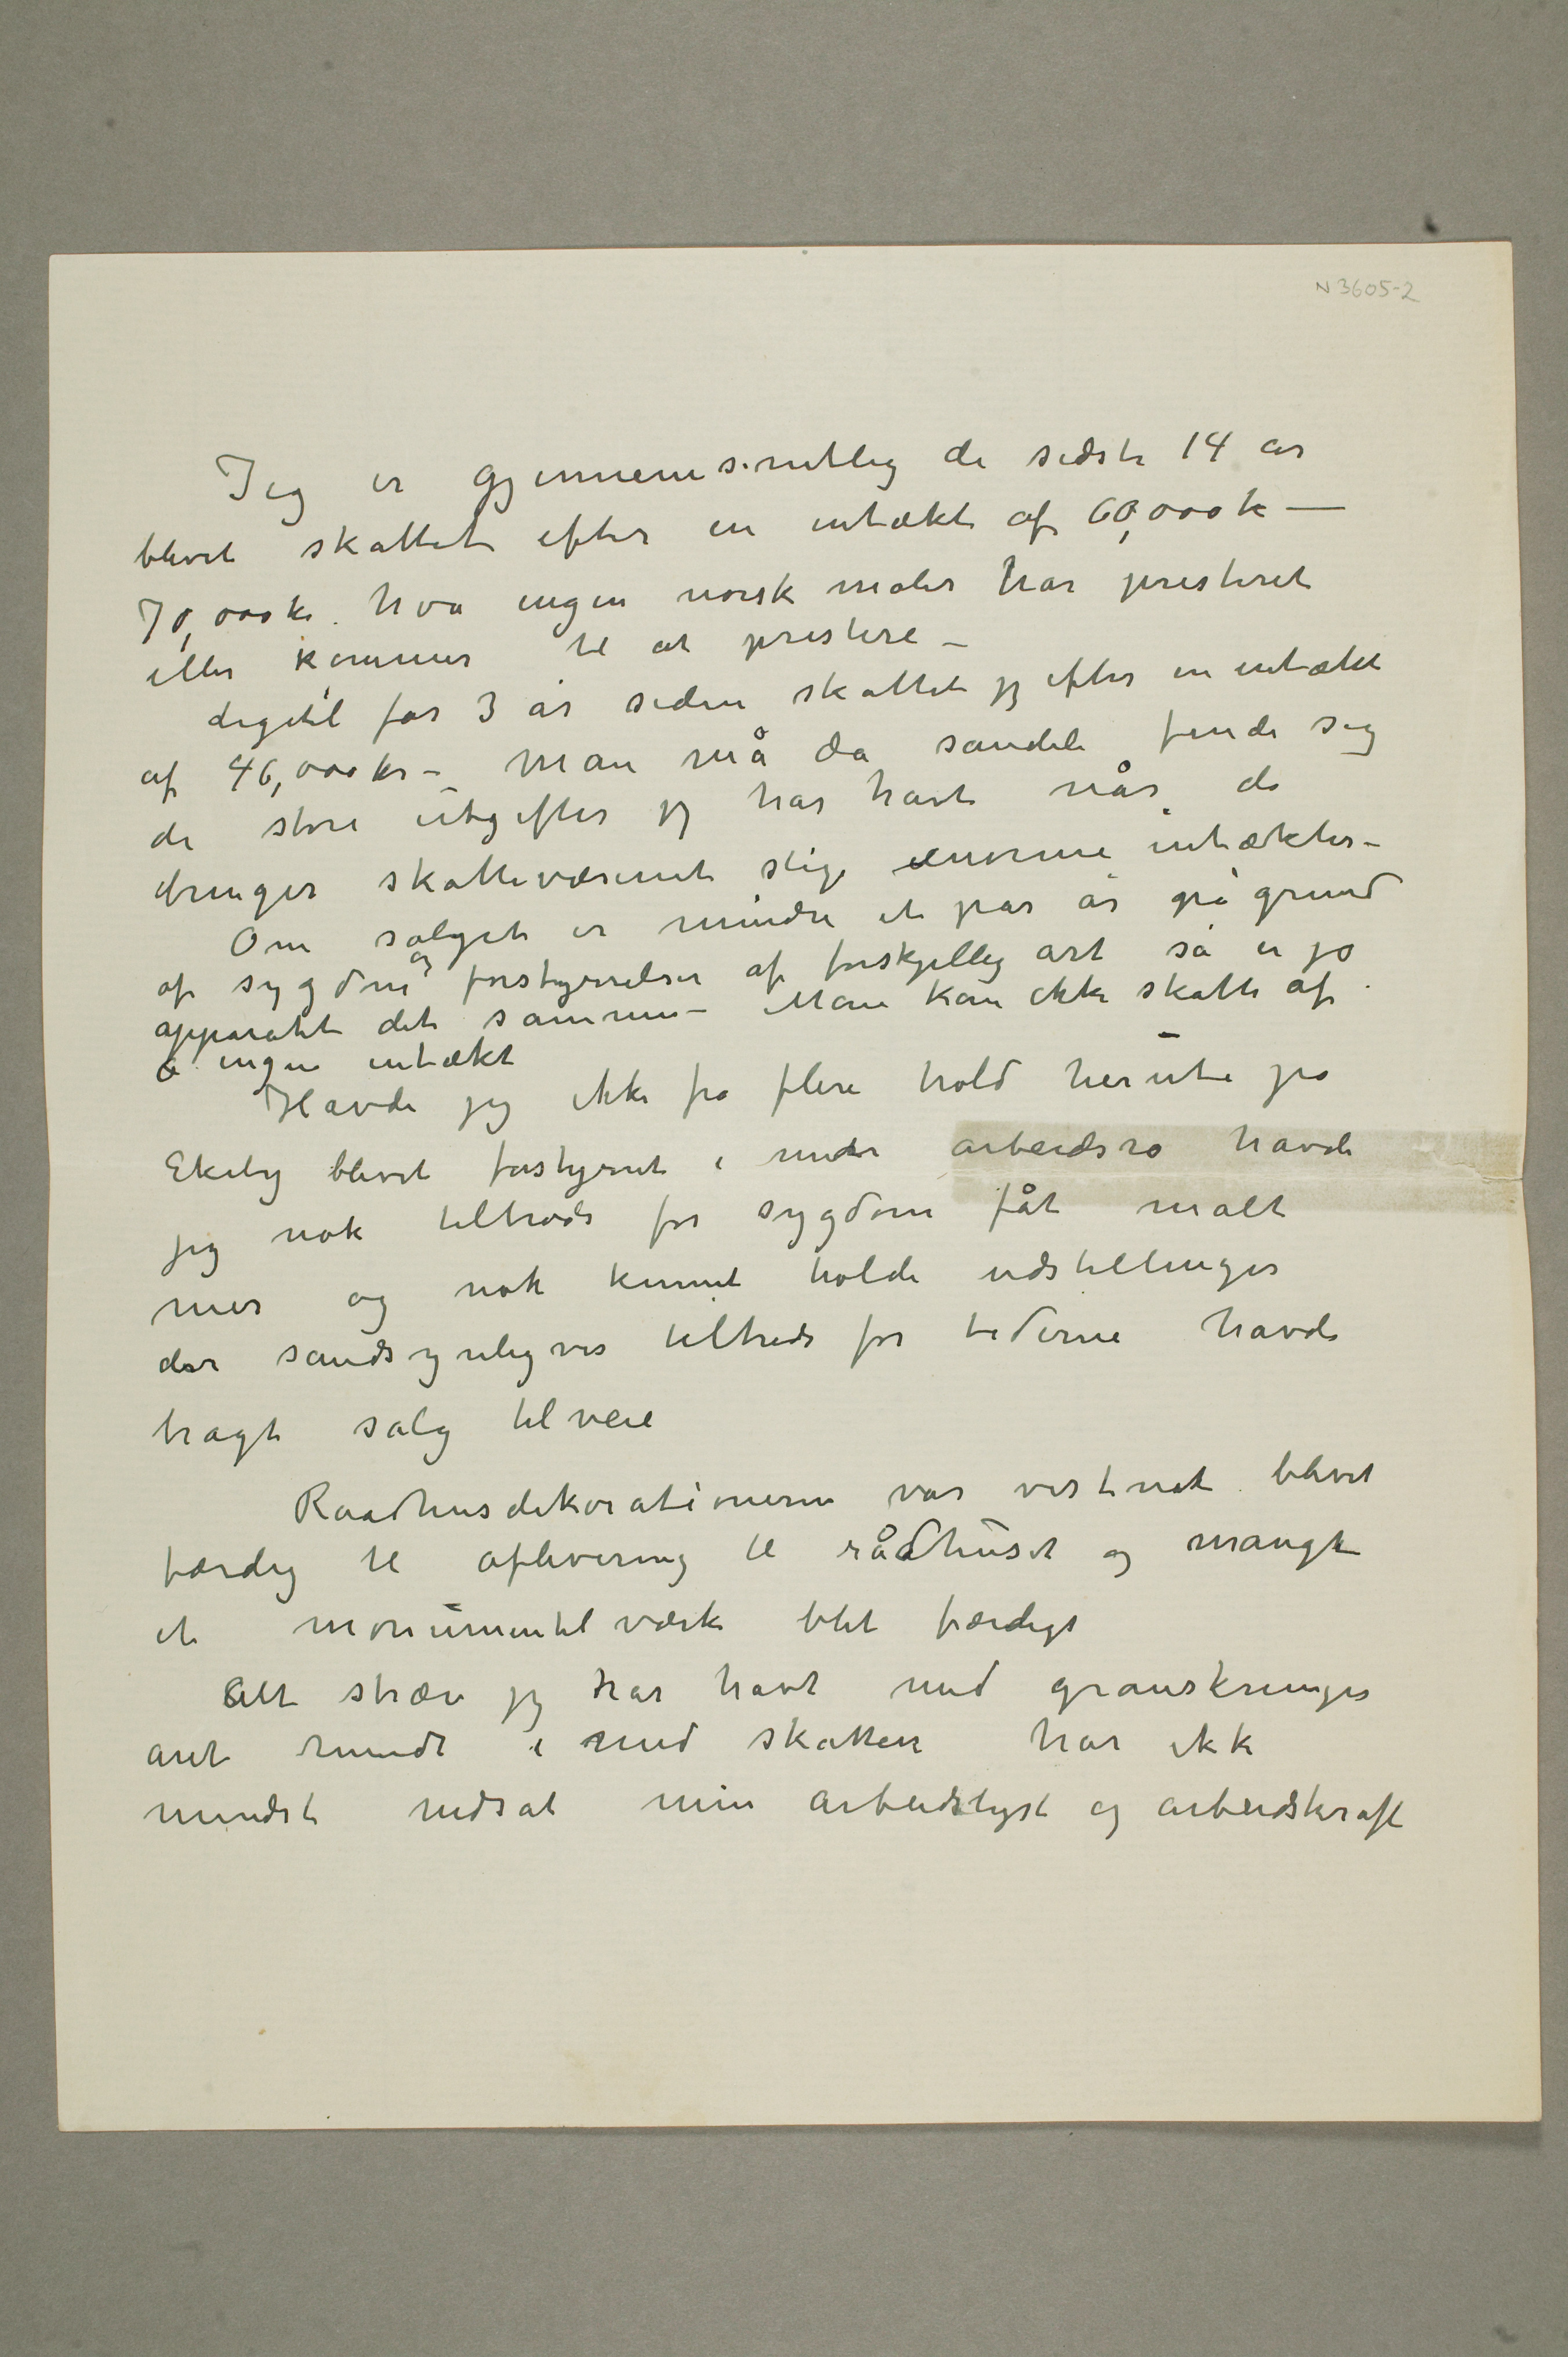 N 3605-2
Jeg er gjennemsnitlig de sidste 14 år
blevet skattet efter en intækt af 60,000 k —
70,000 kr. hva ingen norsk maler har presteret
eller kommer til at prestere –
digitil for 3 år siden skattet jeg efter en intækt
af 46,000 kr – Man må da sandeli finde sig
de store utgifter jeg har havt når de
bringer skattevæsenet slige enorme intækter –
Om salget er mindre et par år på grund
af sygdom og forstyrrelser af forskjellig art så er jo
apparatet det samme – Man kan ikke skatte af
ingen intækt
Havde jeg ikke fra flere hold herute på
Ekely blevet forstyrret i min arbeidsro havde
jeg nok tiltrods for sygdom fåt malt
mer og nok kunnet holde udstillinger
der sandsynligvis tiltrods for tiderne havde
bragt salg tilveie
Raadhusdekorationerne var vist nok blevet
færdig til aflevering til rådhuset og mangt
et monumentalværk blit færdigt
Alt stræv jeg har havt med granskninger
året rundt i med skatten har ikke
mindst nedsat min arbeidslyst og arbeidskraft